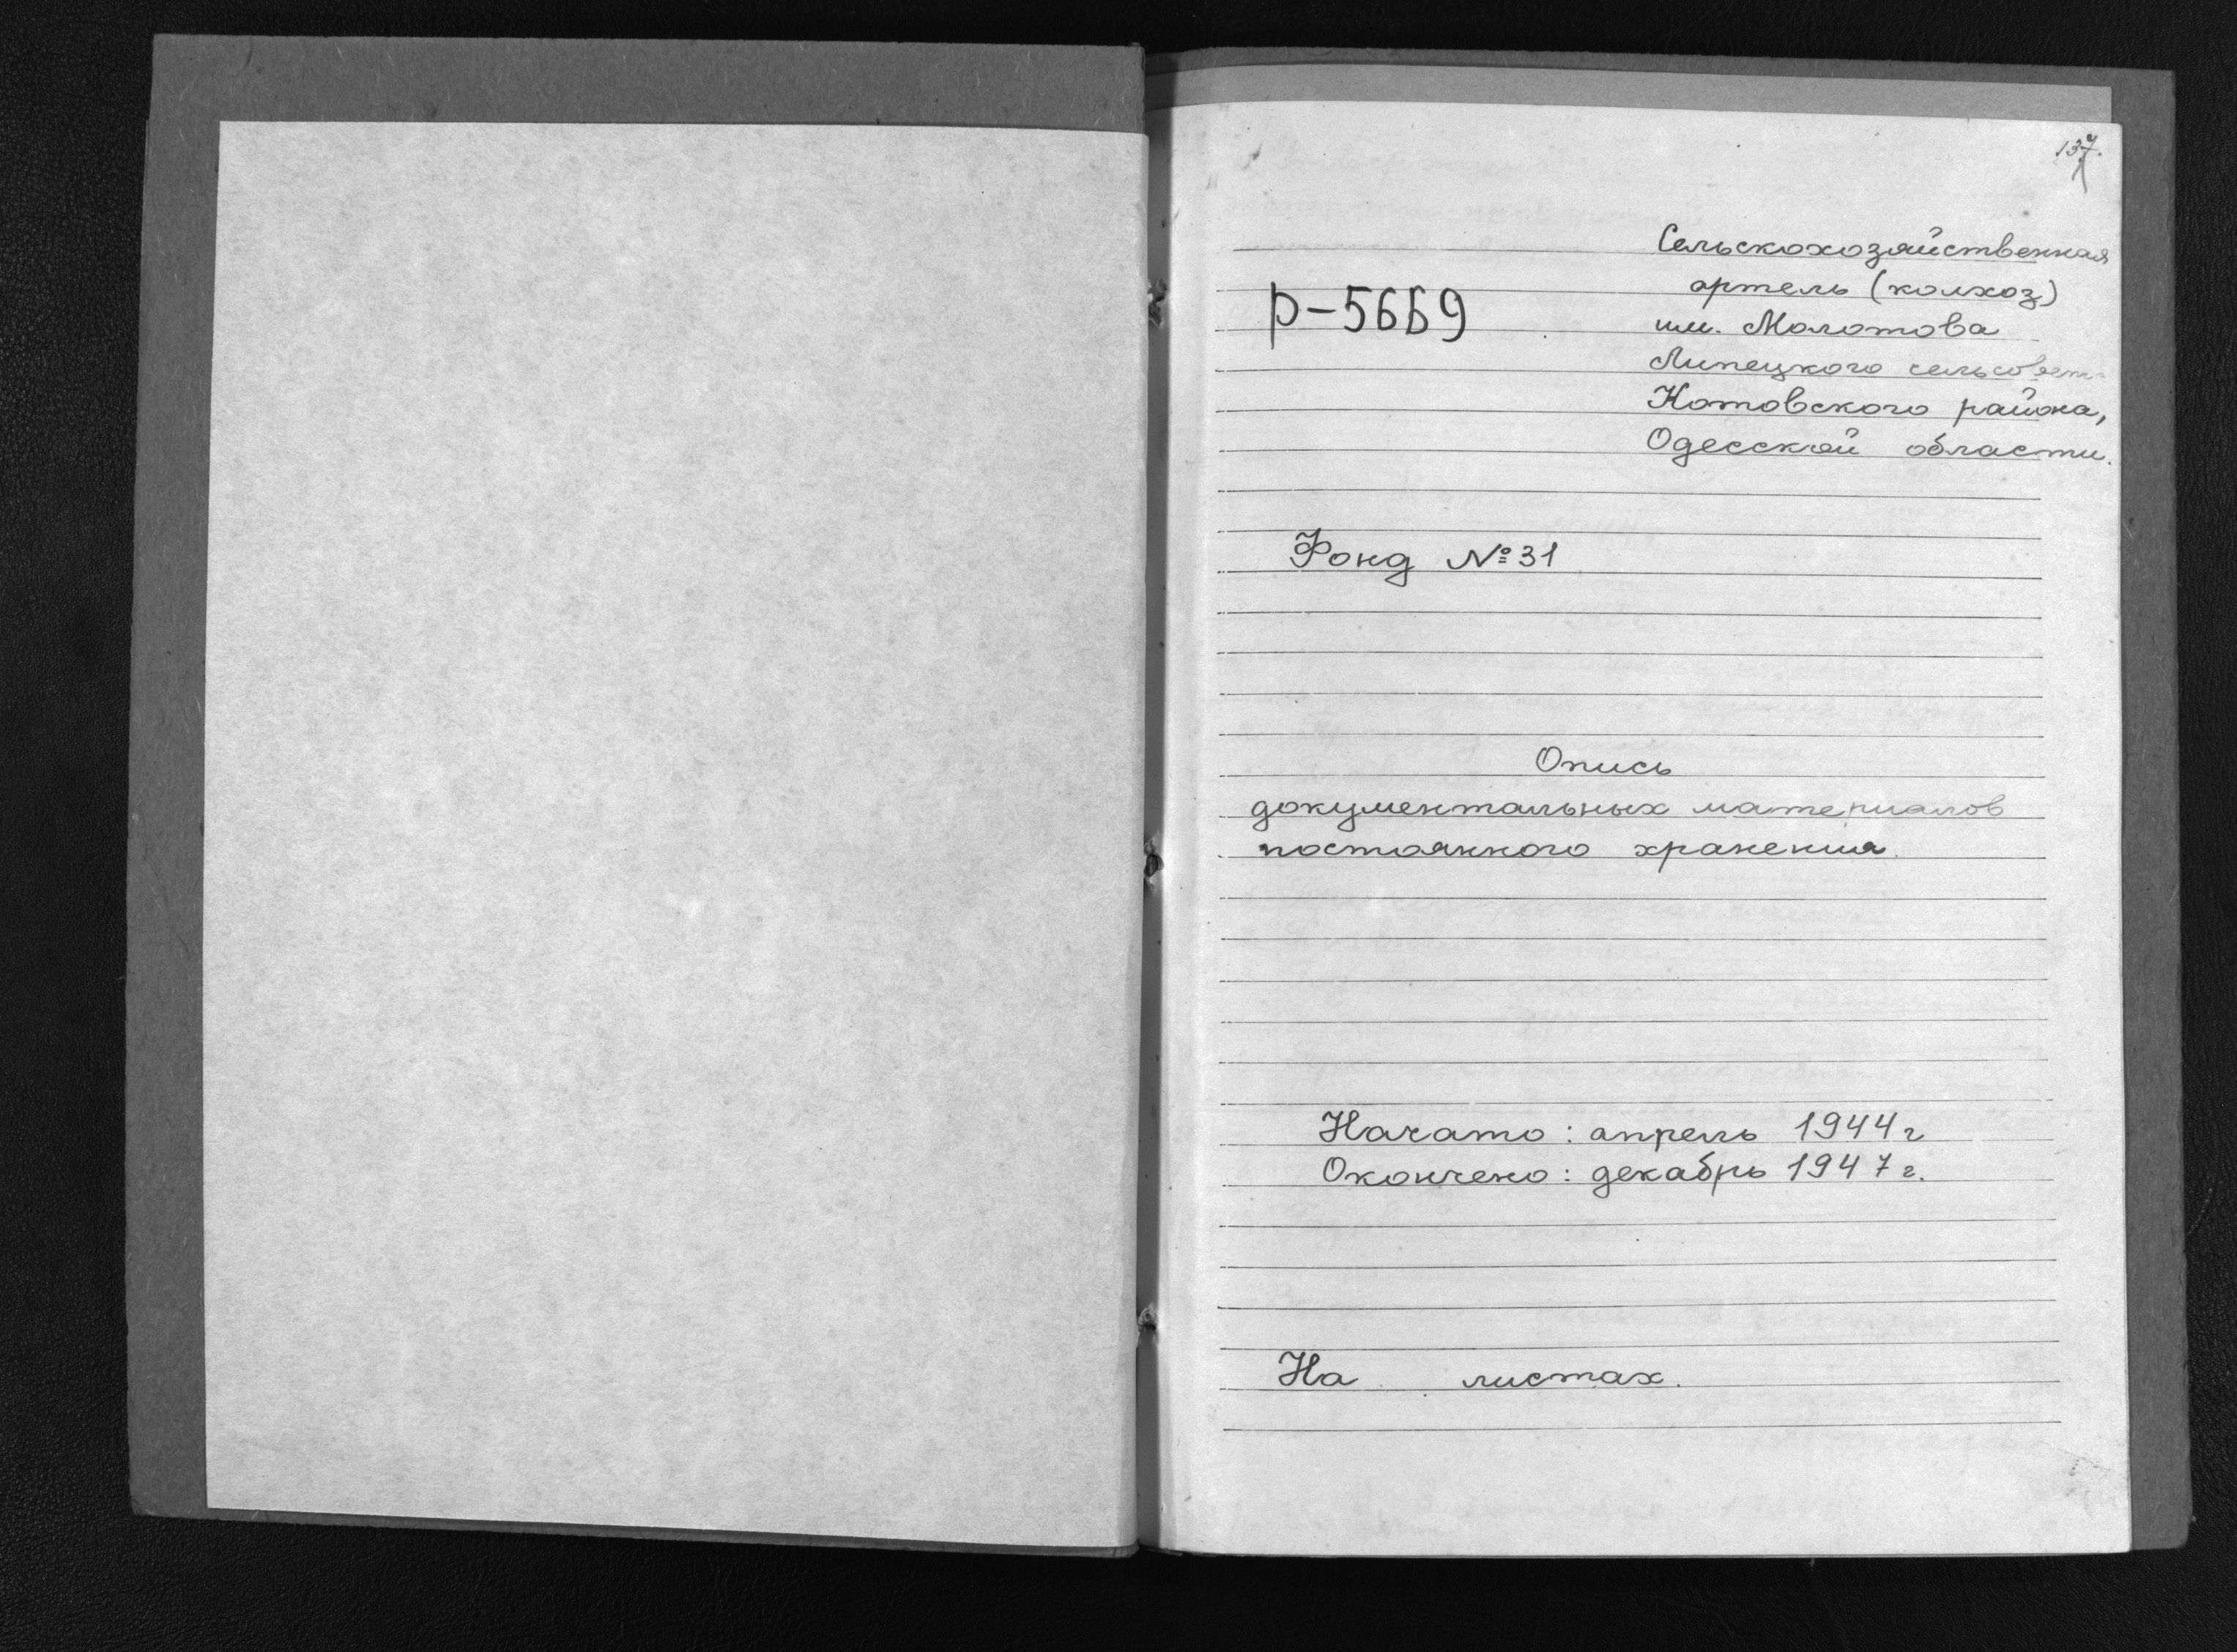 137.
Сельскохозяйственная
артель (колхоз)
им. Молотова
Липецкого сельсовета
Котовского района,
Одесской области.
Р-5669
Фонд №31
Опись
документальных материалов
постоянного хранения.
Начато: апрель 1944 г
Окончено: декабрь 1947 г.
На листах.